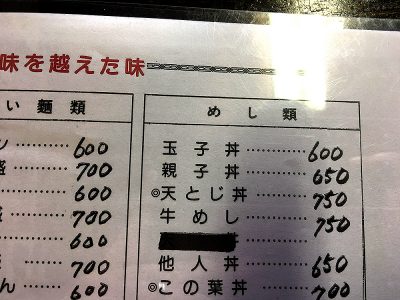 味を越えた味
い麺類
600
盛 700
600
700
600
700
ん 600
めし類
玉子丼 600
親子丼 650
◎天とじ丼 750
牛めし 750
丼
他人丼 650
◎この葉丼 700